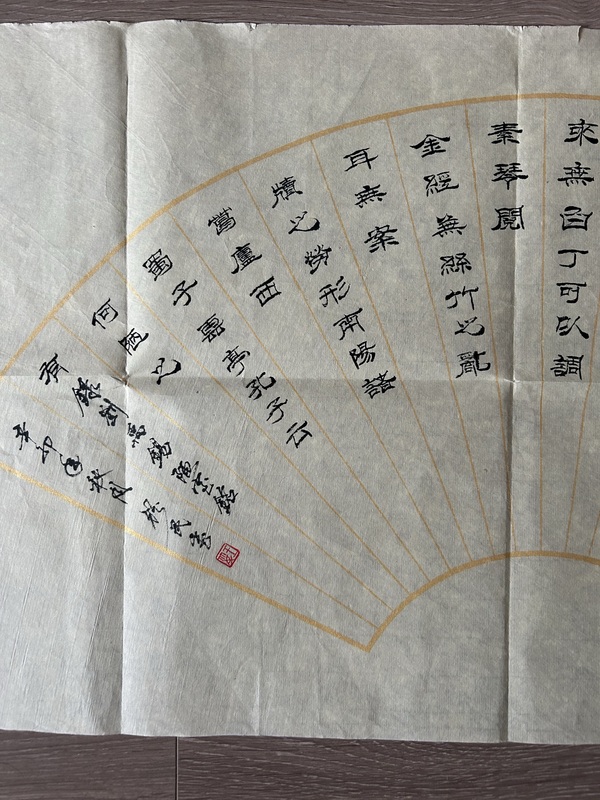 來無白丁可以調
素琴閱
金經無絲竹之亂
耳無案
牘之勞形南陽諸
葛廬西
蜀子雲亭孔子云
何陋之
有 錄劉禹錫陋室銘
辛卯 秋月 民書